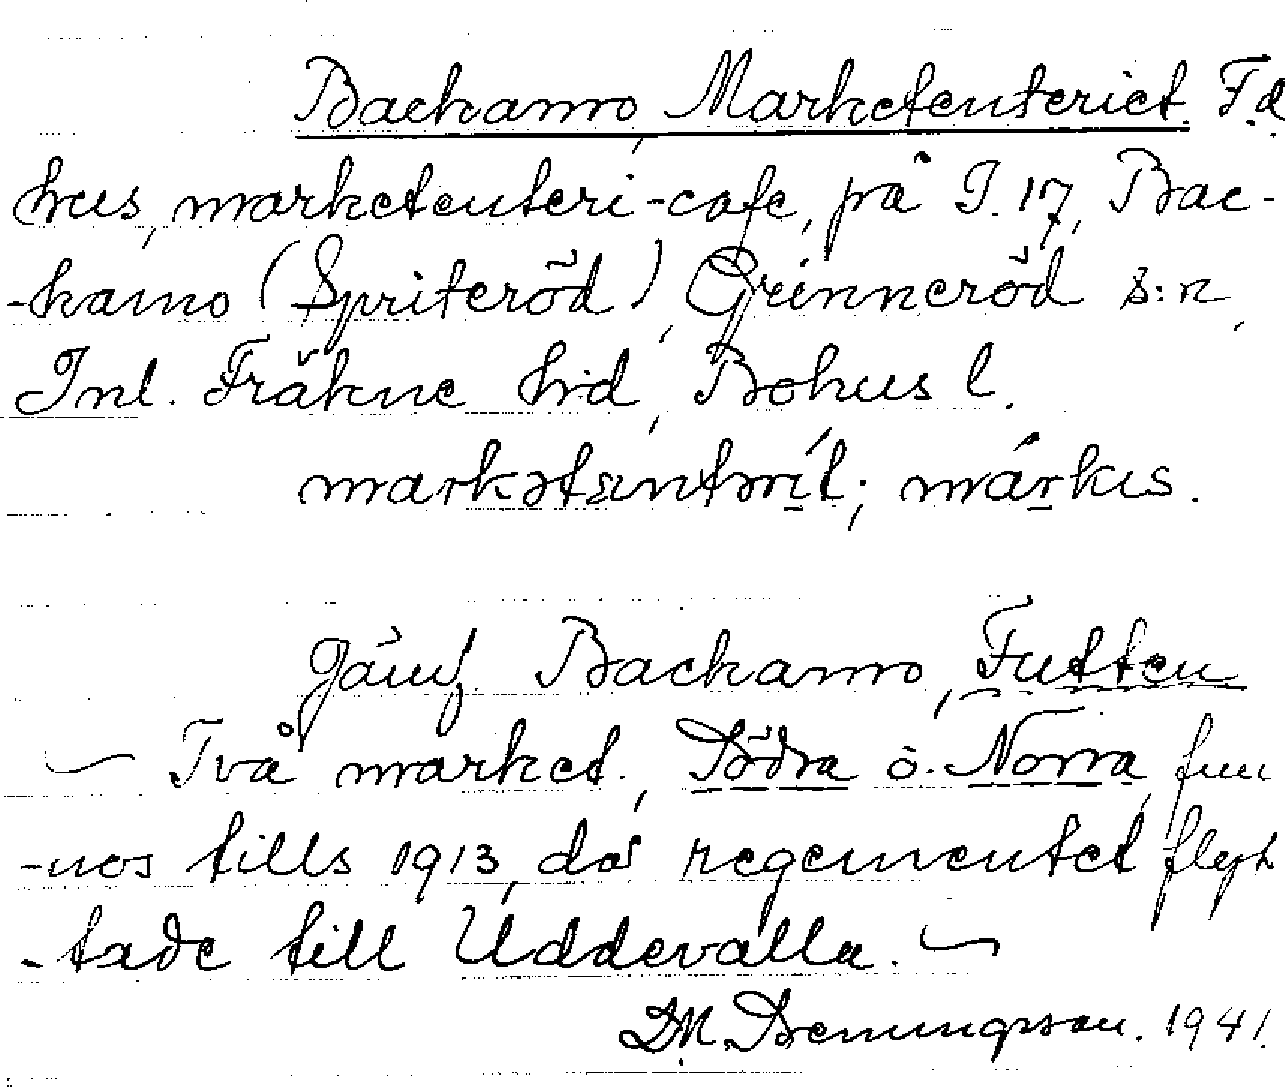 Backamo, Marketenteriet. F.d.
hus, marketenteri-cafe, på I. 17, Bac-
-kamo (Spriteröd), Grinneröd s:n,
Inl. Fräkne hd, Bohus l.
markətɛntərít; márkɩs.
Jämf. Backamo, Futten
Två market., Södra o. Norra, fun
-nos tills 1913, då regementet flyt
-tade till Uddevalla.
1941.